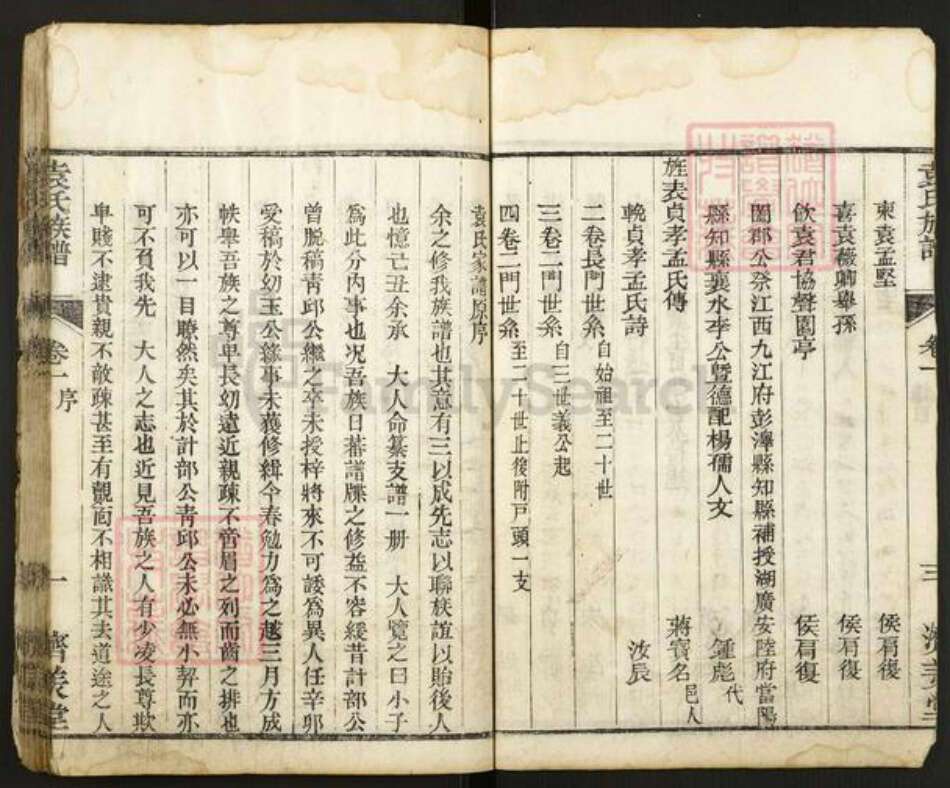 袁氏族譜
卷一
三
東袁孟堅
侯肩復
喜袁薇卿舉孫
侯肩復
飲袁君協聲園亭
侯肩復
闔郡公祭江西九江府彭澤縣知縣補授湖廣安陸府當陽
縣知縣襄水李公暨德配楊孺人文
鍾彪代
旌表貞孝孟氏傳
蔣寶名邑人
輓貞孝孟氏詩
汝辰
二卷長門世系自始祖至二十世
三卷二門世系自三世義公起
四卷二門世系至二十世止後附戸頭一支
袁氏家譜原序
余之修我族譜也其意有三以成先志以聯族誼以貽後人
也憶己丑余承　大人命纂支譜一册　大人覽之曰小子
爲此分內事也况吾族日蕃譜牒之修益不容緩昔計部公
曾脫稿靑邱公繼之卒未授梓將來不可諉爲異人任辛卯
受稿於幼玉公緣事未獲修緝今春勉力爲之越三月方成
帙舉吾族之尊卑長幼遠近親疎不啻眉之列而齒之排也
亦可以一目瞭然矣其於計部公靑邱公未必無小契而亦
可不負我先　大人之志也近見吾族之人有少凌長尊欺
卑賤不逮貴親不敵疎甚至有覿面不相識其去道途之人
袁氏族譜
卷一
序
一
濟美堂
FamilySearch